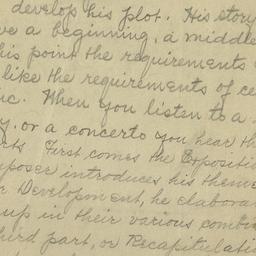 develop his plot. His story
a beginning, a middle
his point the requirements
like the requirements of
When you listen to a
y, or a concerto you hear th
First comes the Expositi
poser introduces his them
Development, he elabora
up in their various combi
hird part, or Recapitulati